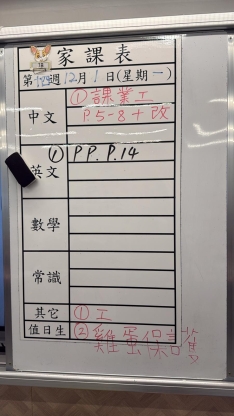 家課表
第十四週12月1日(星期一)
中文 ①課業工
P.5-8+改
英文 ① PP. P.14
數學
常識
其它 ①工
值日生 ②雞蛋保護